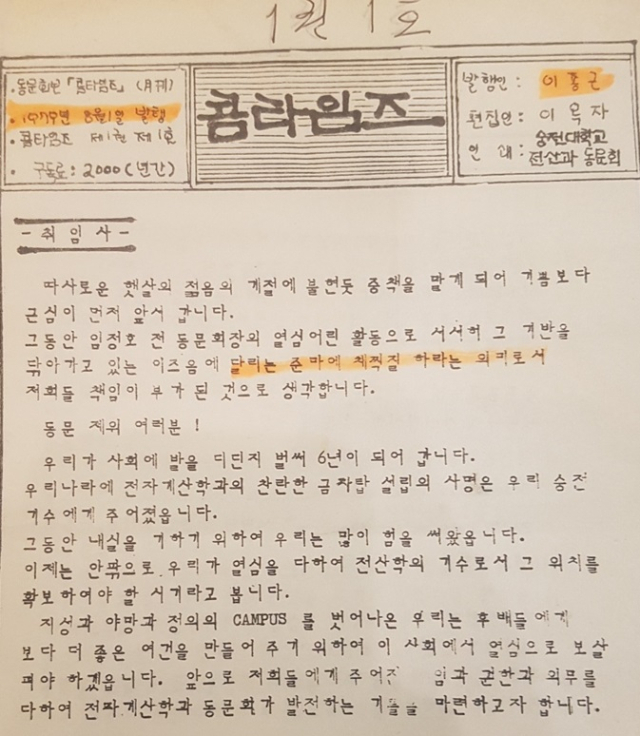 1권 1호
·동문회보 「콤타임즈」 (月刊)
·1979년 8월1일 발행
·콤타임즈 제1권 제1호
· 구독료: 2000(년간)
콤타임즈
발행인: 이흥근
편집인: 이옥자
숭전대학교
전산과 동문회
- 취 임 사 -
따사로운 햇살의 젊음의 계절에 불현듯 중책을 맡게 되어 기쁨보다
근심이 먼저 앞서 갑니다.
그동안 임정호 전 동문회장의 열심어린 활동으로 서서히 그 기반을
닦아가고 있는 이즈음에 달리는 준마에 채찍질 하라는 의미로서
저희들 책임이 부가 된 것으로 생각합니다.
동문 제위 여러분 !
우리가 사회에 발을 디딘지 벌써 6년이 되어 갑니다.
우리나라에 전자계산학과의 찬란한 금자탑 설립의 사명은 우리 숭전
기수에게 주어졌읍니다.
그동안 내실을 기하기 위하여 우리는 많이 힘을 써왔읍니다.
이제는 안팎으로 우리가 열심을 다하여 전산학의 기수로서 그 위치를
확보하여야 할 시기라고 봅니다.
지성과 야망과 정의의 CAMPUS 를 벗어나온 우리는 후배들에게
보다 더 좋은 여건을 만들어 주기 위하여 이 사회에서 열심으로 보살
펴야 하겠읍니다. 앞으로 저희들에게 주어진 임과 권한과 의무를
다하여 전자계산학과 동문회가 발전하는 기틀을 마련하고자 합니다.